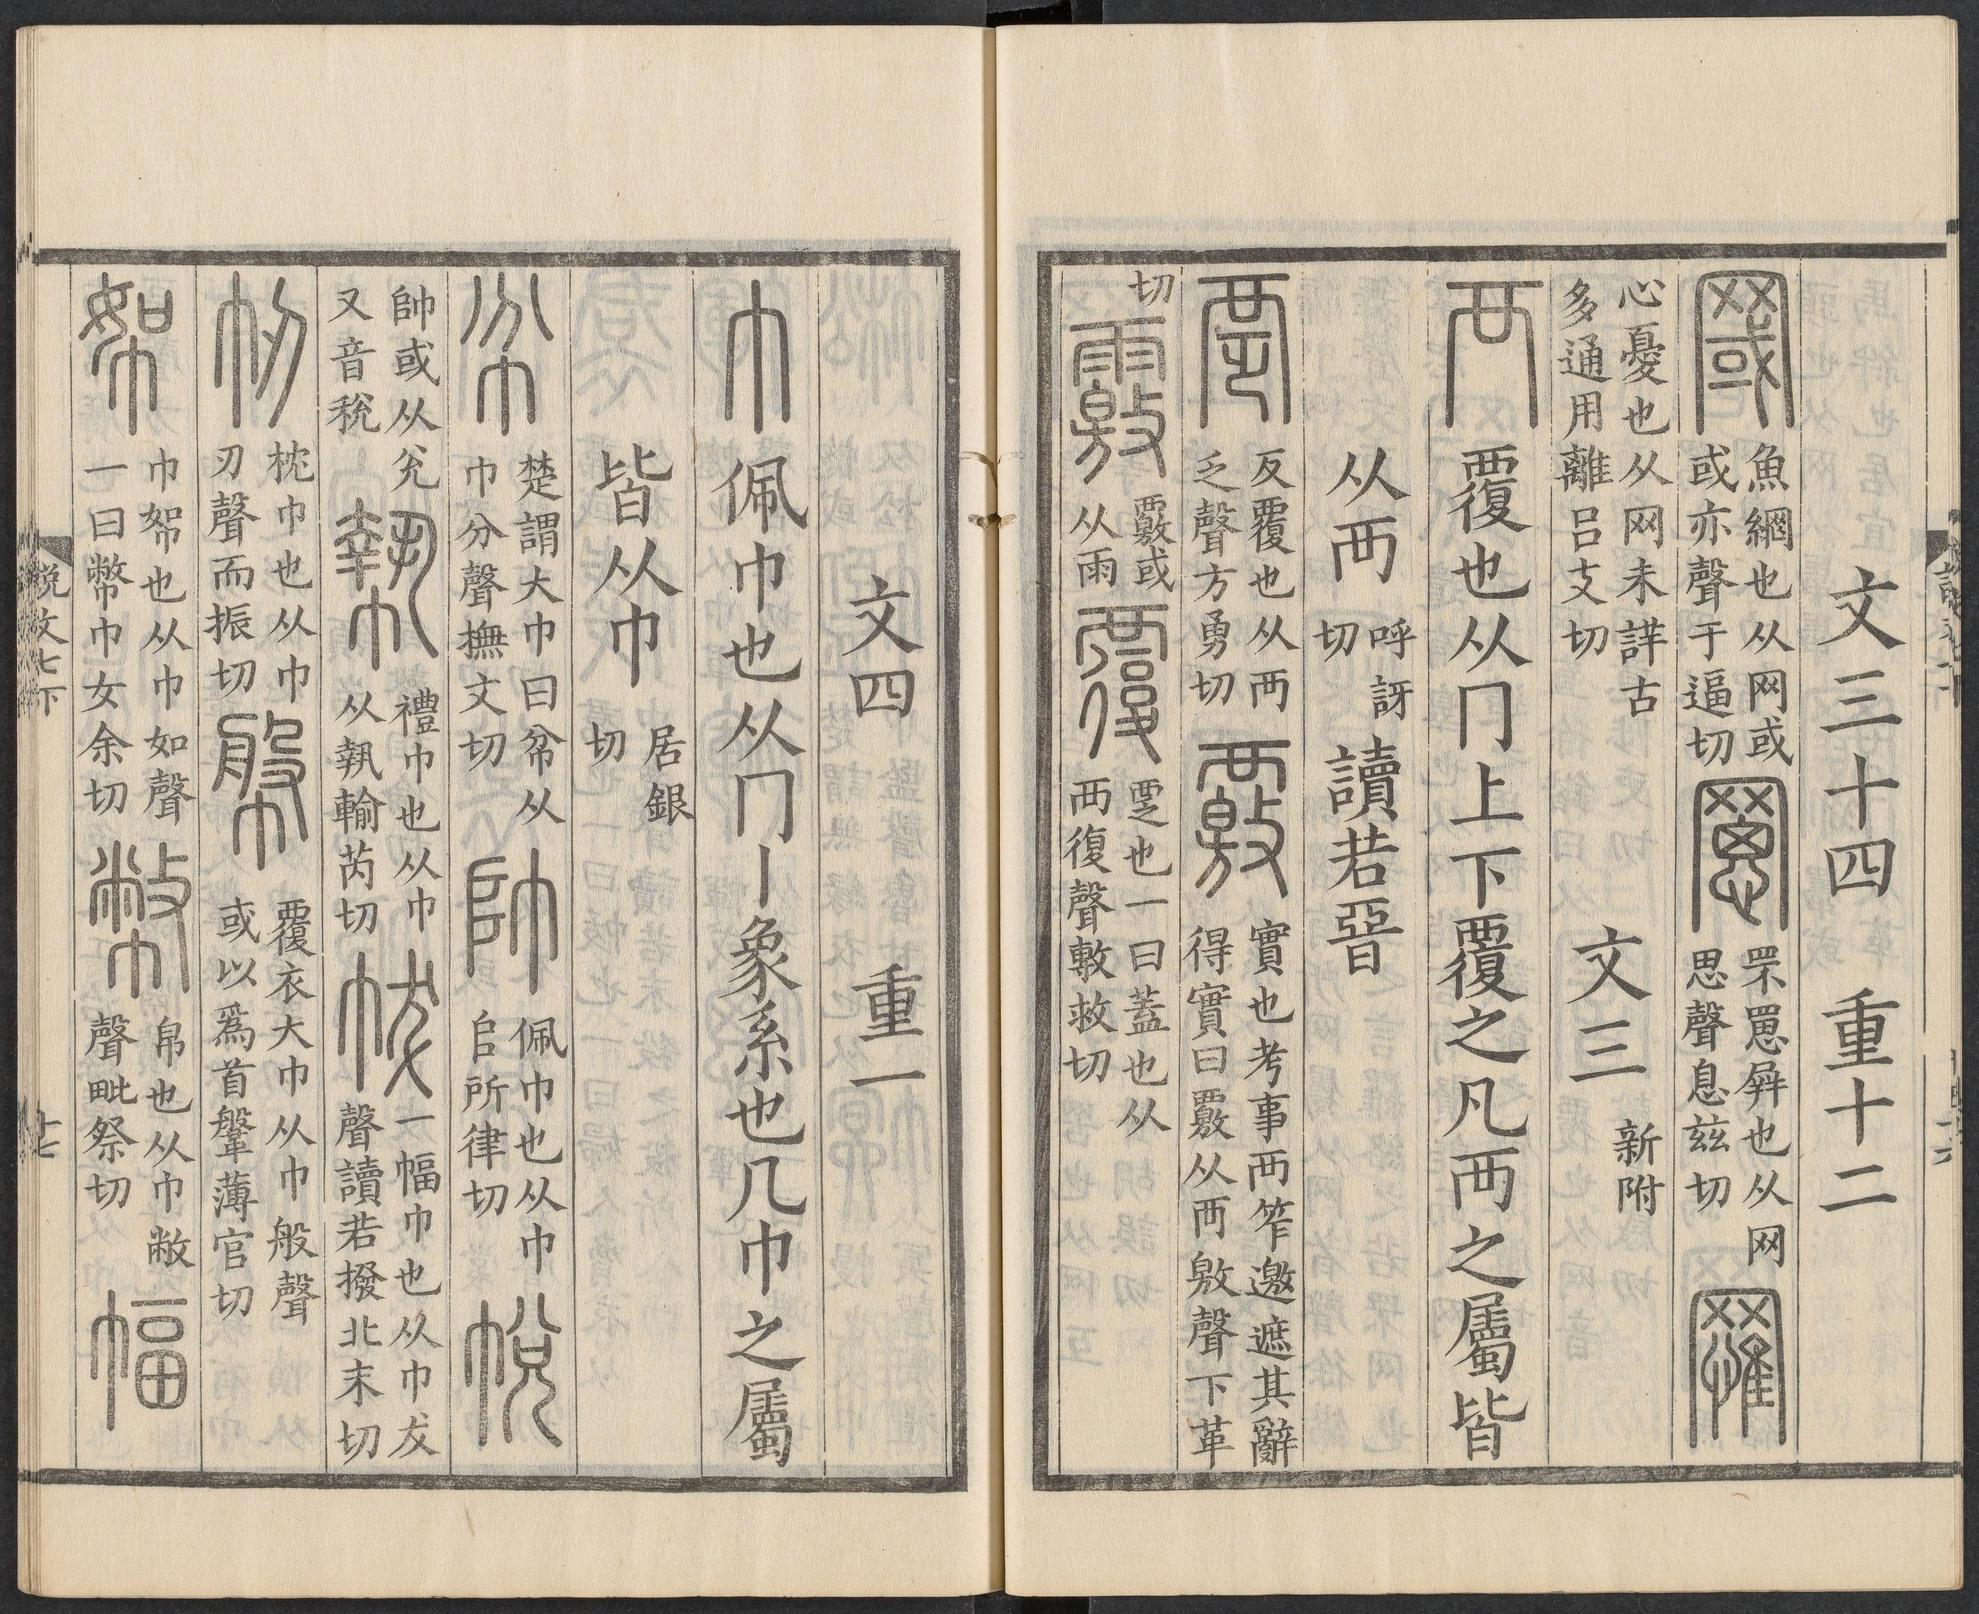 文三十四　重十二
罭 魚網也从网或
或亦聲于逼切
罳 罘罳屏也从网
思聲息茲切
罹
心憂也从网未詳古
多通用離呂支切
文三 新附
襾 覆也从冂上下覆之凡襾之屬皆
从襾 呼訝切 讀若晉
覂 反覆也从襾
乏聲方勇切
覈 實也考事襾笮邀遮其辭
得實曰覈从襾敫聲下革
切
䨹 覈或
从雨
覆 覂也一曰蓋也从
襾復聲敷救切
文四　重一
巾 佩巾也从冂丨象糸也凡巾之屬
皆从巾 居銀切
帉 楚謂大巾曰帉从
巾分聲撫文切
帥 佩巾也从巾
𠂤所律切
帨
帥或从兌
又音稅
㡇 禮巾也从巾
从執輸芮切
帗 一幅巾也从巾犮
聲讀若撥北末切
㠴 枕巾也从巾
刃聲而振切
幋 覆衣大巾从巾般聲
或以爲首鞶薄官切
帤 巾帤也从巾如聲
一曰幣巾女余切
幣 帛也从巾敝
聲毗祭切
幅
說文七下
十七